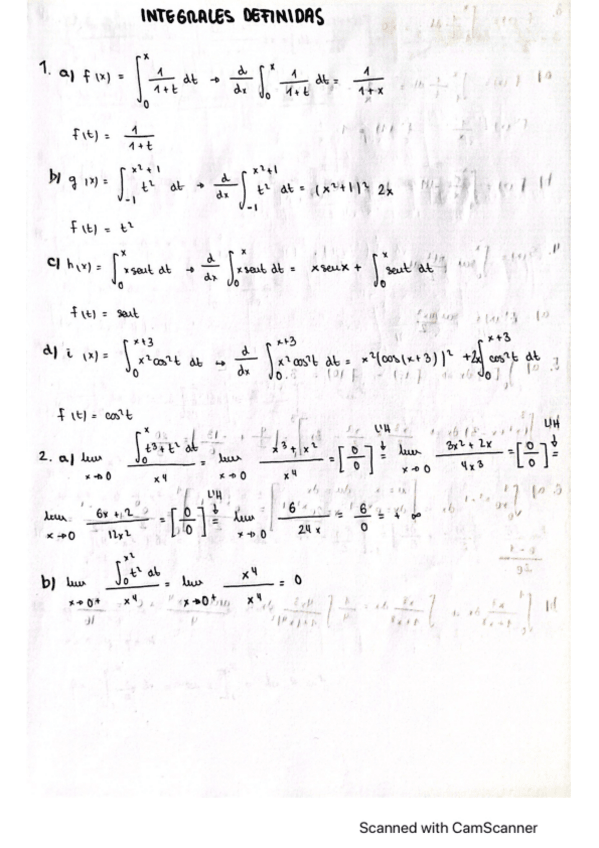 INTEGRALES DEFINIDAS
1. a) f(x) = ∫₀ˣ 1/(1+t) dt → d/dx ∫₀ˣ 1/(1+t) dt = 1/(1+x)
f(t) = 1/(1+t)
b) g(x) = ∫₋₁^(x²+1) t² dt → d/dx ∫₋₁^(x²+1) t² dt = (x²+1)² 2x
f(t) = t²
c) h(x) = ∫₀ˣ x sent dt → d/dx ∫₀ˣ x sent dt = x senx + ∫₀ˣ sent dt
f(t) = sent
d) i(x) = ∫₀^(x+3) x² cos²t dt → d/dx ∫₀^(x+3) x² cos²t dt = x² (cos(x+3))² + 2x ∫₀^(x+3) cos²t dt
f(t) = cos²t
2. a) lim x→0 (∫₀ˣ t³+t² dt)/x⁴ = lim x→0 (x³+x²)/x⁴ = [0/0] L'H = lim x→0 (3x²+2x)/4x³ = [0/0] L'H =
lim x→0 (6x+2)/12x² = [0/0] L'H = lim x→0 6/24x = 6/0 = +∞
b) lim x→0⁺ (∫₀^(x²) t² dt)/x⁴ = lim x→0⁺ x⁴/x⁴ = 0
Scanned with CamScanner